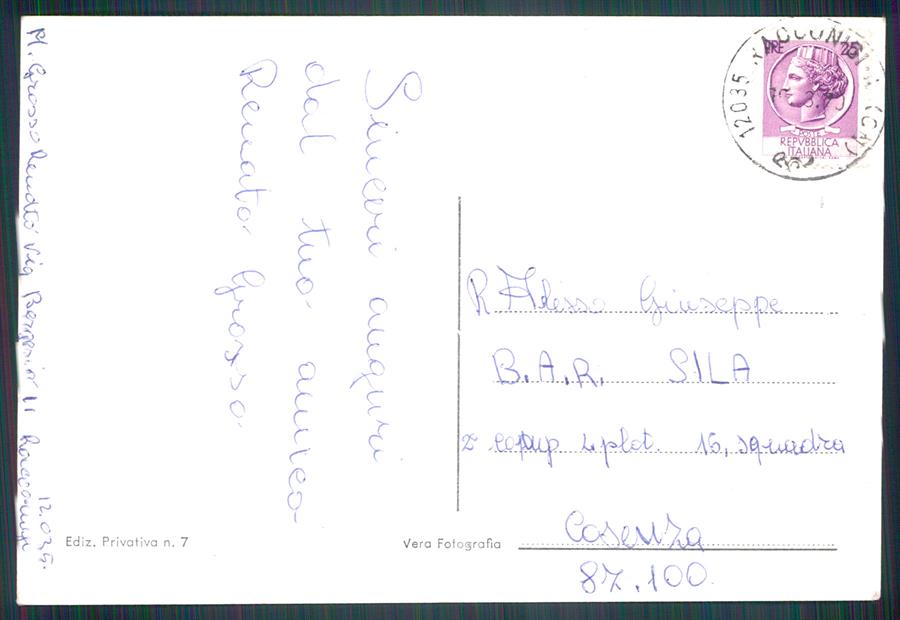 Sinceri auguri
dal tuo amico
Renato Grosso
M. Grosso Renato Via 11 Racconigi
12.035.
LIRE 25
POSTE
REPVBBLICA
ITALIANA
12035 RACCONIGI (CN)
R Alesso Giuseppe
B.A.R. SILA
2 comp 4 plot. 15, squadra
Cosenza
87.100.
Ediz. Privativa n. 7
Vera Fotografia